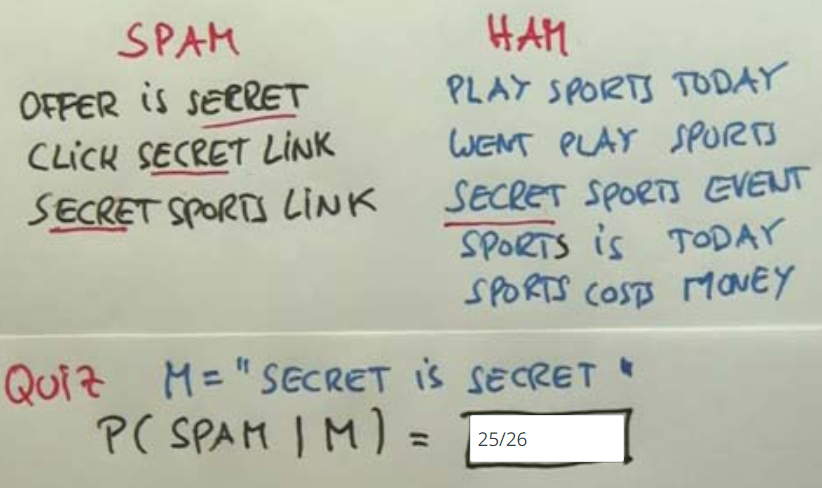 SPAM
OFFER iS SECRET
CLiCK SECRET LiNK
SECRET SPORTS LiNK
HAM
PLAY SPORTS TODAY
WENT PLAY SPORTS
SECRET SPORTS EVENT
SPORTS iS TODAY
SPORTS COSTS MONEY
QUiZ M = "SECRET iS SECRET"
P( SPAM | M ) = 25/26